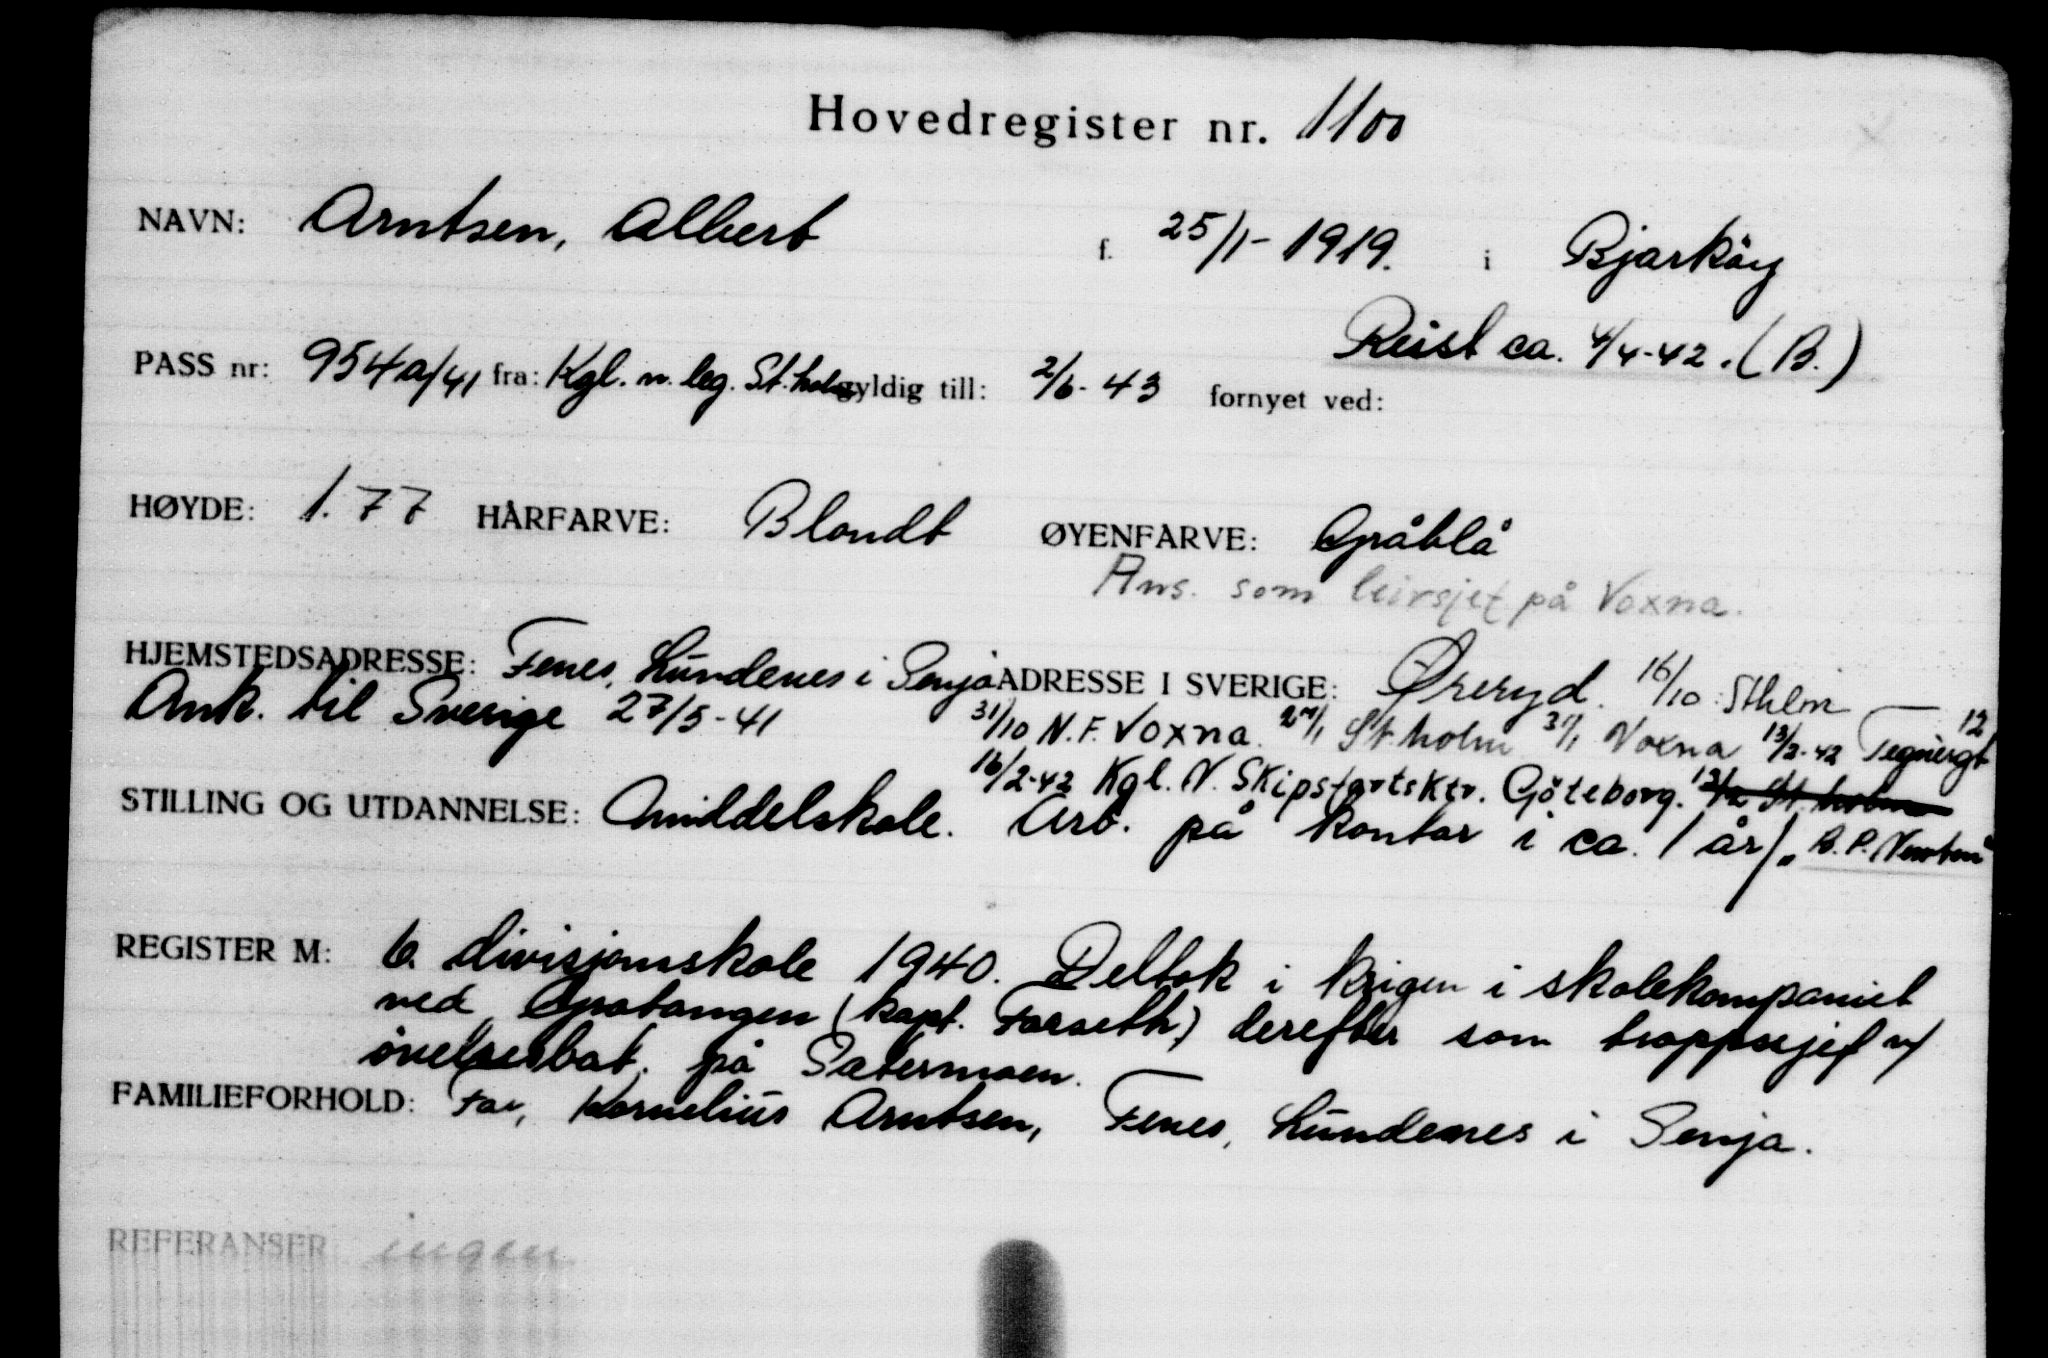 Hovedregister nr. 1100
NAVN: Arntsen, Albert f. 25/1-1919. i Bjarköy
Reist ca. 4/4-42. (B.)
PASS nr: 954a/41 fra: Kgl. n. leg. St.holm gyldig till: 2/6-43 fornyet ved:
HØYDE: 1.77 HÅRFARVE: Blondt ØYENFARVE: Gråblå
Ans. som leirsjef på Voxna.
HJEMSTEDSADRESSE: Fenes, Lundenes i Senja ADRESSE I SVERIGE: Öreryd. 16/10 Sthlm
Ank. til Sverige 27/5-41 31/10 N.F. Voxna. St.holm 31/1 Voxna 13/2-42 Tegnérgt 12
16/2-42 Kgl. N. Skipsfartsktr. Göteborg. St.holm
STILLING OG UTDANNELSE: Middelskole. Arb. på kontor i ca. 1 år). B.P. Newton"
REGISTER M: 6. divisjonskole 1940. Deltok i krigen i skolekompaniet
ved Gratangen (kapt. Forseth) derefter som troppssjef v/
övelsesbat. på Setermoen.
FAMILIEFORHOLD: Far, Kornelius Arntsen, Fenes, Lundenes i Senja.
REFERANSER: ingen